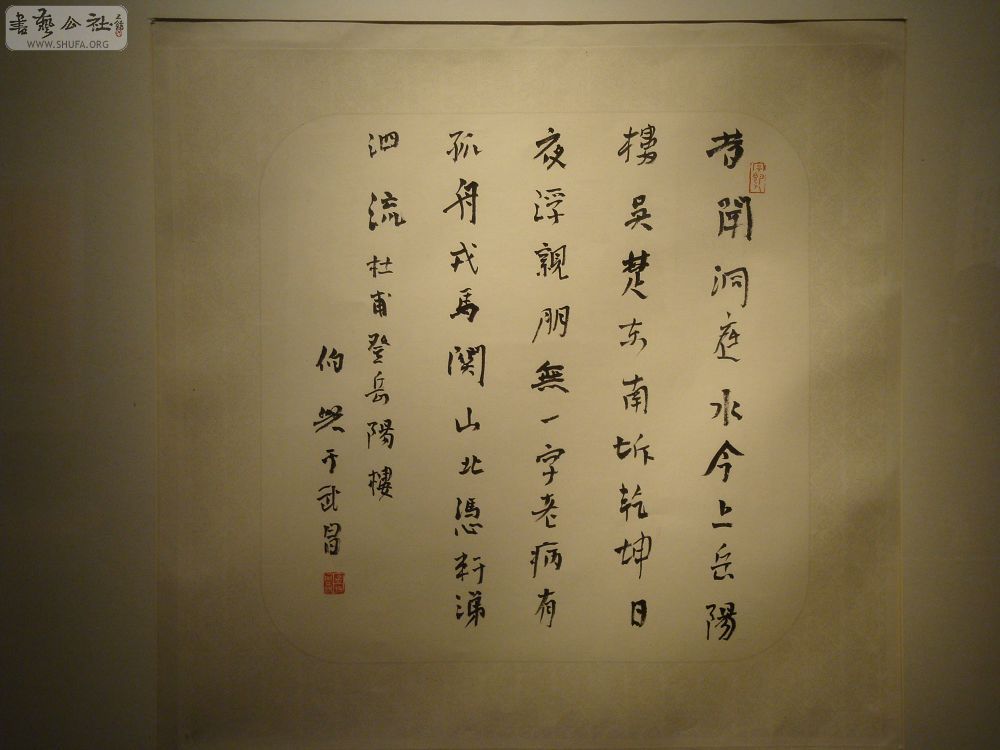 書藝公社
WWW.SHUFA.ORG
昔聞洞庭水今上岳陽
樓吳楚东南坼乾坤日
夜浮親朋無一字老病有
孤舟戎馬関山北憑軒涕
泗流杜甫登岳陽樓
伯於武昌